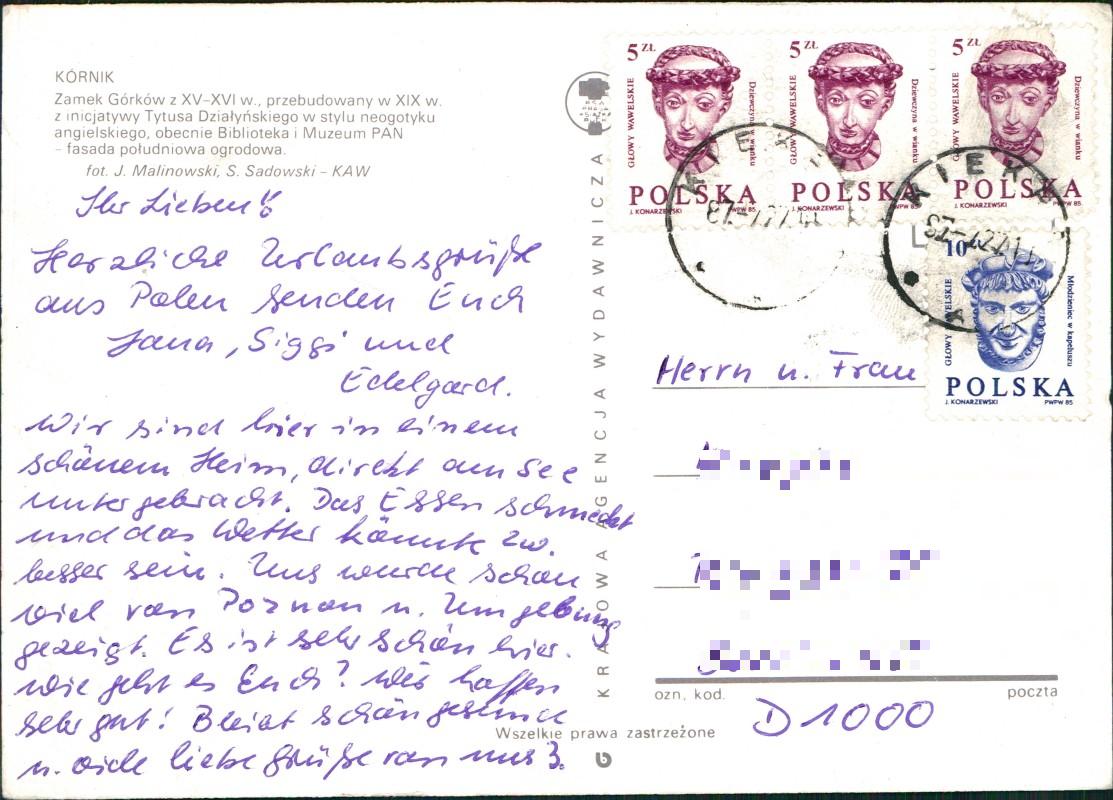 KÓRNIK
Zamek Górków z XV–XVI w., przebudowany w XIX w.
z inicjatywy Tytusa Działyńskiego w stylu neogotyku
angielskiego, obecnie Biblioteka i Muzeum PAN
– fasada południowa ogrodowa.
fot. J. Malinowski, S. Sadowski – KAW
Ihr Lieben!
Herzliche Urlaubsgrüße
aus Polen senden Euch
Jana, Siggi und
Edelgard.
Wir sind hier in einem
schönem Heim, direkt am See
untergebracht. Das Essen schmeckt
und das Wetter könnte zw.
besser sein. Uns wurde schon
viel von Poznan u. Umgebung
gezeigt. Es ist sehr schön hier.
Wie geht es Euch? Wir hoffen
sehr gut! Bleibt schön gesund
u. viele liebe Grüße von uns 3.
KRAJOWA AGENCJA WYDAWNICZA
Wszelkie prawa zastrzeżone
5 ZŁ
GŁOWY WAWELSKIE
Dziewczyna w wianku
POLSKA
J. KONARZEWSKI PWPW 85
5 ZŁ
GŁOWY WAWELSKIE
Dziewczyna w wianku
POLSKA
J. KONARZEWSKI PWPW 85
5 ZŁ
GŁOWY WAWELSKIE
Dziewczyna w wianku
POLSKA
J. KONARZEWSKI PWPW 85
10
GŁOWY WAWELSKIE
Młodzieniec w kapeluszu
POLSKA
J. KONARZEWSKI PWPW 85
KIEKRZ
Herrn u. Frau
ozn. kod. poczta
D 1000